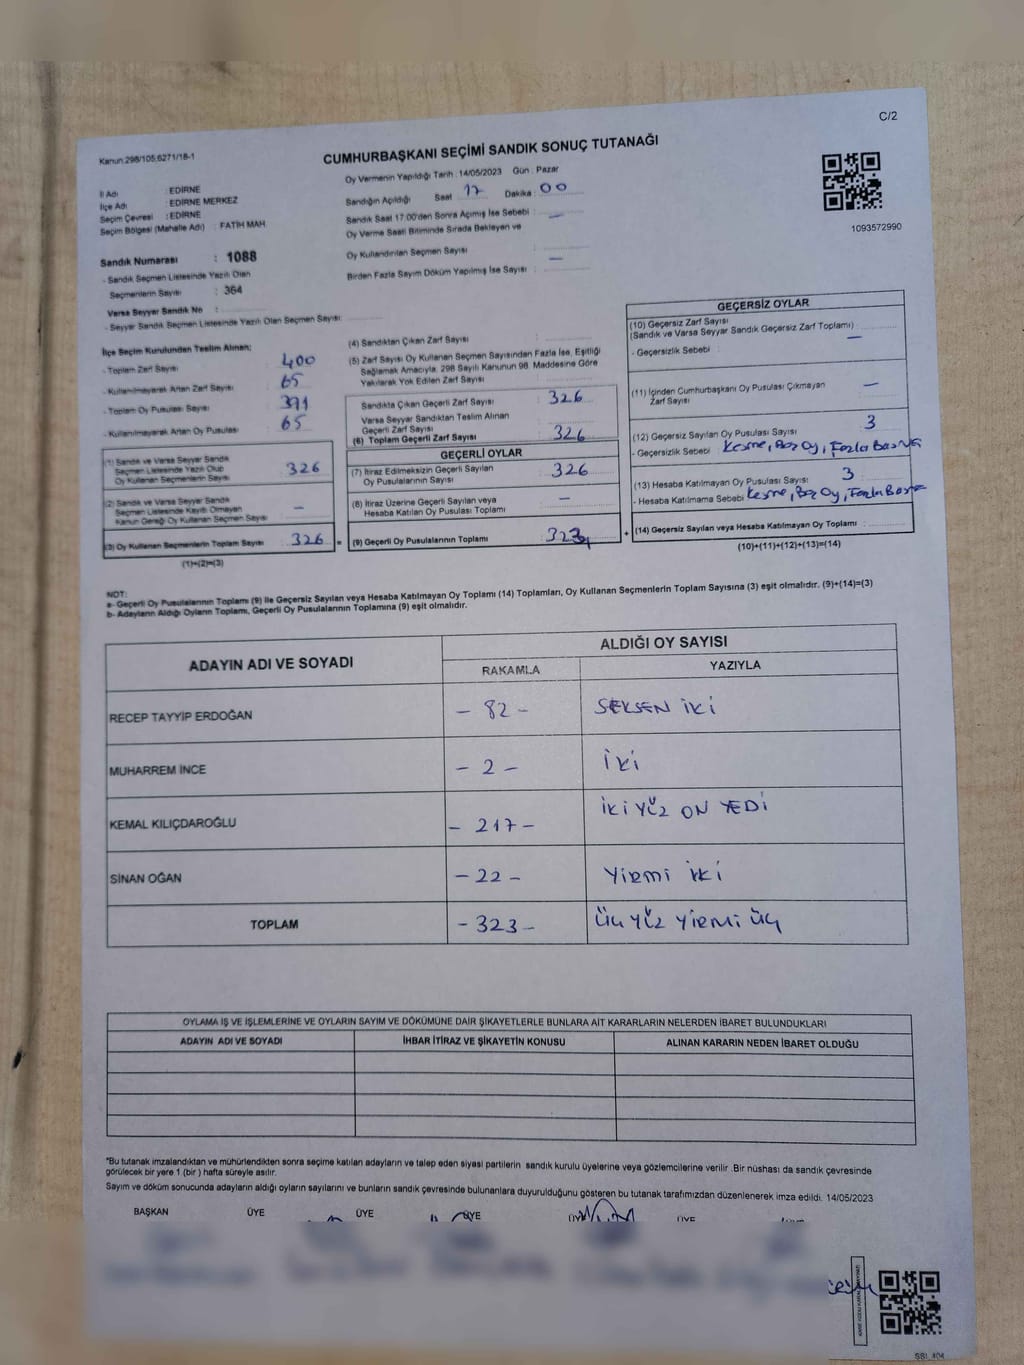 C/2
Kanun:298/105,6271/18-1
CUMHURBAŞKANI SEÇİMİ SANDIK SONUÇ TUTANAĞI
Oy Vermenin Yapıldığı Tarih : 14/05/2023 Gün : Pazar
İl Adı : EDİRNE
İlçe Adı : EDİRNE MERKEZ
Seçim Çevresi : EDİRNE
Seçim Bölgesi (Mahalle Adı) : FATİH MAH
Sandığın Açıldığı Saat 17 Dakika : 00
Sandık Saat 17:00'den Sonra Açımış İse Sebebi : —
Oy Verme Saati Bitiminde Sırada Bekleyen ve
Oy Kullandırılan Seçmen Sayısı : —
Birden Fazla Sayım Döküm Yapılmış İse Sayısı :
1093572990
Sandık Numarası : 1088
- Sandık Seçmen Listesinde Yazılı Olan
Seçmenlerin Sayısı : 364
Varsa Seyyar Sandık No :
- Seyyar Sandık Seçmen Listesinde Yazılı Olan Seçmen Sayısı:
İlçe Seçim Kurulundan Teslim Alınan;
- Toplam Zarf Sayısı : 400
- Kullanılmayarak Artan Zarf Sayısı : 65
- Toplam Oy Pusulası Sayısı : 391
- Kullanılmayarak Artan Oy Pusulası : 65
(1) Sandık ve Varsa Seyyar Sandık
Seçmen Listesinde Yazılı Olup
Oy Kullanan Seçmenlerin Sayısı 326
(2) Sandık ve Varsa Seyyar Sandık
Seçmen Listesinde Kayıtlı Olmayan
Kanun Gereği Oy Kullanan Seçmen Sayısı —
(3) Oy Kullanan Seçmenlerin Toplam Sayısı 326 =
(1)+(2)=(3)
(4) Sandıktan Çıkan Zarf Sayısı :
(5) Zarf Sayısı Oy Kullanan Seçmen Sayısından Fazla İse, Eşitliği
Sağlamak Amacıyla, 298 Sayılı Kanunun 98. Maddesine Göre
Yakılarak Yok Edilen Zarf Sayısı
Sandıkta Çıkan Geçerli Zarf Sayısı : 326
Varsa Seyyar Sandıktan Teslim Alınan
Geçerli Zarf Sayısı
(6) Toplam Geçerli Zarf Sayısı : 326
GEÇERLİ OYLAR
(7) İtiraz Edilmeksizin Geçerli Sayılan
Oy Pusulalarının Sayısı : 326
(8) İtiraz Üzerine Geçerli Sayılan veya
Hesaba Katılan Oy Pusulası Toplamı : —
(9) Geçerli Oy Pusulalarının Toplamı : 323 +
GEÇERSİZ OYLAR
(10) Geçersiz Zarf Sayısı
(Sandık ve Varsa Seyyar Sandık Geçersiz Zarf Toplamı) : —
- Geçersizlik Sebebi :
(11) İçinden Cumhurbaşkanı Oy Pusulası Çıkmayan
Zarf Sayısı : —
(12) Geçersiz Sayılan Oy Pusulası Sayısı : 3
- Geçersizlik Sebebi Kesme, Boş Oy, Fazla Basma
(13) Hesaba Katılmayan Oy Pusulası Sayısı : 3
- Hesaba Katılmama Sebebi Kesme, Boş Oy, Fazla Basma
(14) Geçersiz Sayılan veya Hesaba Katılmayan Oy Toplamı :
(10)+(11)+(12)+(13)=(14)
NOT:
a- Geçerli Oy Pusulalarının Toplamı (9) ile Geçersiz Sayılan veya Hesaba Katılmayan Oy Toplamı (14) Toplamları, Oy Kullanan Seçmenlerin Toplam Sayısına (3) eşit olmalıdır. (9)+(14)=(3)
b- Adayların Aldığı Oyların Toplamı, Geçerli Oy Pusulalarının Toplamına (9) eşit olmalıdır.
ADAYIN ADI VE SOYADI
ALDIĞI OY SAYISI
RAKAMLA YAZIYLA
RECEP TAYYİP ERDOĞAN - 82 - SEKSEN İKİ
MUHARREM İNCE - 2 - İki
KEMAL KILIÇDAROĞLU - 217 - İKİ YÜZ ON YEDİ
SİNAN OĞAN - 22 - Yirmi iki
TOPLAM - 323 - Üç yüz yirmi üç
OYLAMA İŞ VE İŞLEMLERİNE VE OYLARIN SAYIM VE DÖKÜMÜNE DAİR ŞİKAYETLERLE BUNLARA AİT KARARLARIN NELERDEN İBARET BULUNDUKLARI
ADAYIN ADI VE SOYADI İHBAR İTİRAZ VE ŞİKAYETİN KONUSU ALINAN KARARIN NEDEN İBARET OLDUĞU
*Bu tutanak imzalandıktan ve mühürlendikten sonra seçime katılan adayların ve talep eden siyasi partilerin sandık kurulu üyelerine veya gözlemcilerine verilir .Bir nüshası da sandık çevresinde
görülecek bir yere 1 (bir ) hafta süreyle asılır.
Sayım ve döküm sonucunda adayların aldığı oyların sayılarını ve bunların sandık çevresinde bulunanlara duyurulduğunu gösteren bu tutanak tarafımızdan düzenlenerek imza edildi. 14/05/2023
BAŞKAN ÜYE ÜYE ÜYE ÜYE ÜYE